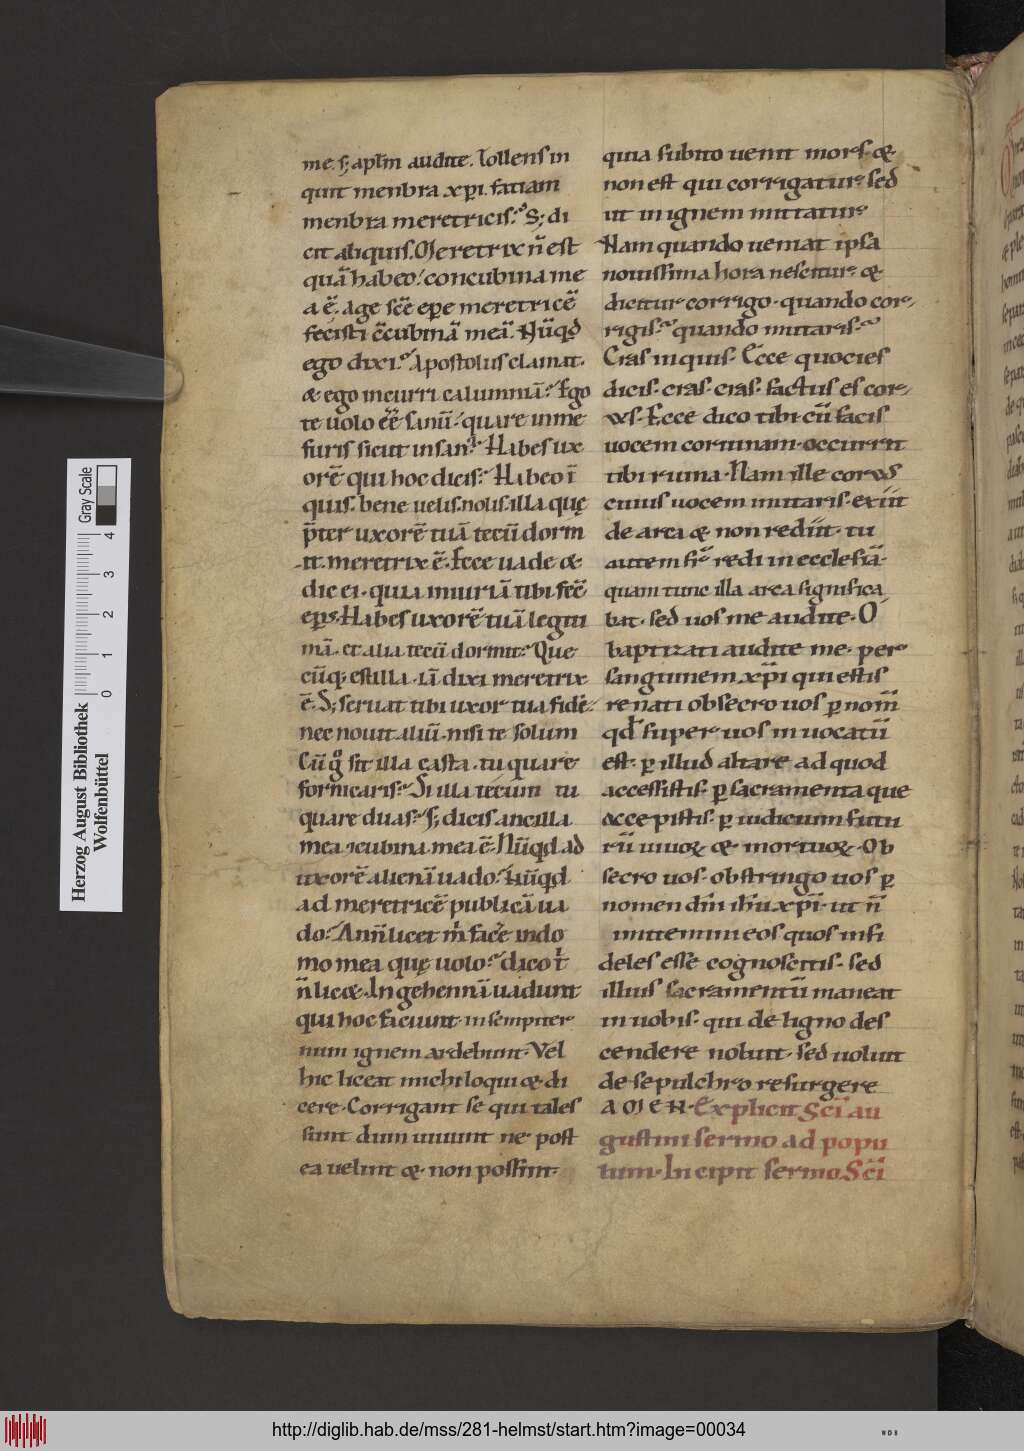 me. s; apłm audite. Tollens in
quit menbra xp̄i. faciam
menbra meretricis? S; di
cit aliquis. Meretrix n̄ est
quā habeo! concubina me
a ē. age sc̄e ep̄e meretricē
fecisti c̄cubinā meā. Nūqd
ego dixi? Apostolus clamat.
& ego incurri calumniā? Ego
te uolo ēē sanū! quare in me
furis sicut insan? Habes ux
orē qui hoc dicis? Habeo ī
quis. bene uelis. nolis. illa quę
p̄ter uxorē tuā tecū dorm
it. meretrix ē. Ecce uade &
dic ei. quia iniuriā tibi fec̄
ep̄s. Habes uxorē tuā legiti
mā. et alia tecū dormit? Que
cūq; est illa. iā dixi meretrix
ē. S; seruat tibi uxor tua fidē.
nec nouit aliū. nisi te solum
Cū g̊ sit illa casta. tu quare
fornicaris? Si illa tecum tu
quare duas? S; dicis ancilla
mea ccubina mea ē. Nūqd ad
uxorē alienā uado? Nūqd
ad meretricē publicā ua
do? Ann̄ licet m̄ facē in do
mo mea quę uolo? dico t̄
n̄ lic&. In gehennā uadunt
qui hoc faciunt. in sempiter
num ignem ardebunt. Vel
hic liceat michi loqui & di
cere. Corrigant se qui tales
sunt dum uiuunt ne post
ea uelint & non possint.
quia subito uenit mors. &
non est qui corrigatur sed
ut in ignem mittatur
Nam quando ueniat ipsa
nouissima hora nescitur &
dicitur corrigo. quando cor,
rigis? quando mutaris?
Cras inquis. Ecce quocies
dicis. cras. cras. factus es cor,
uus. Ecce dico tibi. cū facis
uocem coruinam. occurrit
tibi ruina. Nam ille coruus
cuius uocem imitaris. exiit
de arca & non rediit. tu
autem fr̄ redi in ecclesiā.
quam tunc illa arca significa
bat. sed uos me audite. O
baptizati audite me. per
sanguinem xp̄i qui estis
renati obsecro uos p nom̄
qd̄ super uos inuocatū
est. p illud altare ad quod
accessistis. p sacramenta que
accepistis. p iudicium futu
rū uiuoꝝ & mortuoꝝ. Ob
secro uos. obstringo uos p
nomen dn̄i ih̄u xp̄i. ut n̄
imitemini eos quos infi
deles esse cognoscitis. sed
illius sacramentū maneat
in uobis. qui de ligno des
cendere noluit. sed uoluit
de sepulchro resurgere
AMEN. Explicit Sc̄i au
gustini sermo ad popu
lum. Incipit sermo Sc̄i
Herzog August Bibliothek
Wolfenbüttel
0 1 2 3 4
Gray Scale
http://diglib.hab.de/mss/281-helmst/start.htm?image=00034
WDB